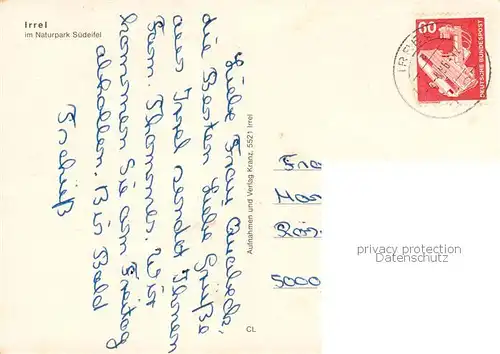 Irrel
im Naturpark Südeifel
Liebe Frau
die Besten Liebe Grüße
aus Irrel sendet Ihnen
Fam. Thommes. Wir
kommen Sie am Freitag
abholen. Bis Bald
Aufnahmen und Verlag Kranz, 5521 Irrel
CL
60
DEUTSCHE BUNDESPOST
IRREL
Fra
5000
privacy protection
Datenschutz